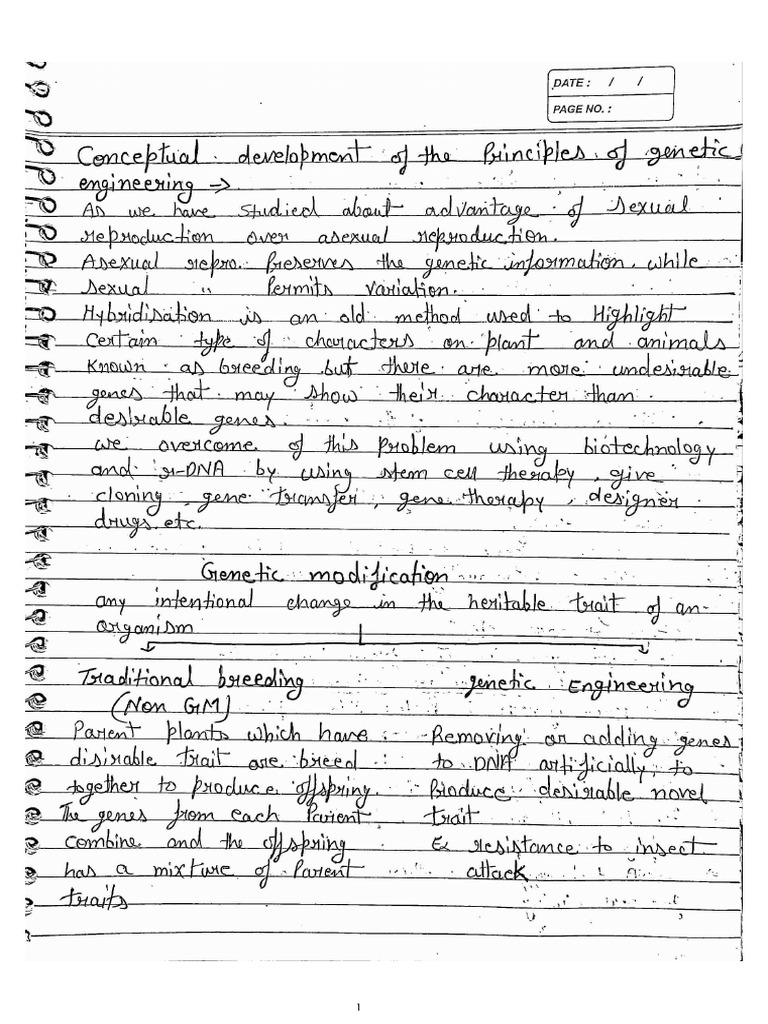 DATE : / /
PAGE NO. :
Conceptual development of the Principles of genetic
engineering →
As we have studied about advantage of sexual
reproduction over asexual reproduction.
Asexual repro. Preserves the genetic information while
sexual " Permits variation.
Hybridisation is an old method used to Highlight
certain type of characters on plant and animals
known as breeding but there are more undesirable
genes that may show their character than
desirable genes.
we overcome of this problem using biotechnology
and r-DNA by using stem cell therapy, give
cloning, gene transfer, gene therapy, designer
drugs etc.
Genetic modification
any intentional change in the heritable trait of an
organism
Traditional breeding genetic Engineering
(Non GM)
Parent plants which have - Removing or adding genes
disirable trait are breed to DNA artificially, to
together to produce offspring. Produce desirable novel
The genes from each Parent trait
combine and the offspring Ex resistance to insect
has a mixture of Parent attack
traits
1